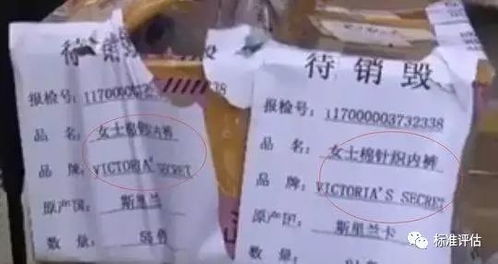 待销毁
报检号: 117000003732338
品 名: 女士棉针织内裤
品 牌: VICTORIA'S SECRET
原产国: 斯里兰
数 量:
待销毁
报检号: 117000003732338
品 名: 女士棉针织内裤
品 牌: VICTORIA'S SECRET
原产国: 斯里兰卡
数 量:
标准评估